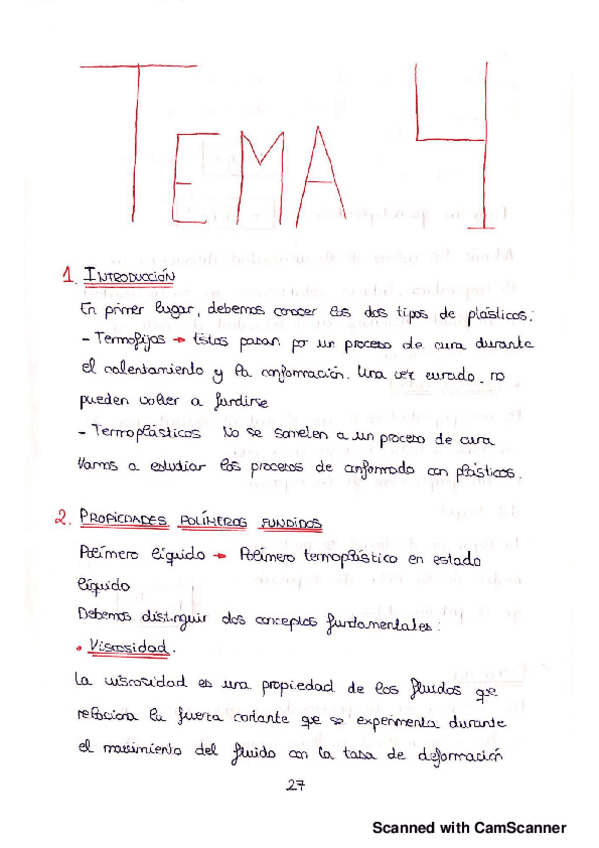 TEMA 4
1. INTRODUCCIÓN
En primer lugar, debemos conocer los dos tipos de plásticos:
- Termofijos → Estos pasan por un proceso de cura durante
el calentamiento y la conformación. Una vez curado, no
pueden volver a fundirse
- Termoplásticos No se someten a un proceso de cura
Vamos a estudiar los procesos de conformado con plásticos.
2. PROPIEDADES POLÍMEROS FUNDIDOS
Polímero líquido → Polímero termoplástico en estado
líquido
Debemos distinguir dos conceptos fundamentales:
• Viscosidad.
La viscosidad es una propiedad de los fluidos que
relaciona la fuerza cortante que se experimenta durante
el movimiento del fluido con la tasa de deformación
27
Scanned with CamScanner